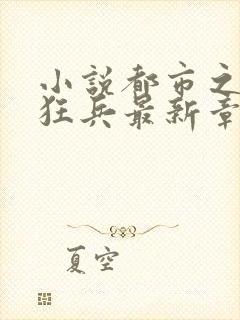 小説都市之
狂兵最新章
夏空